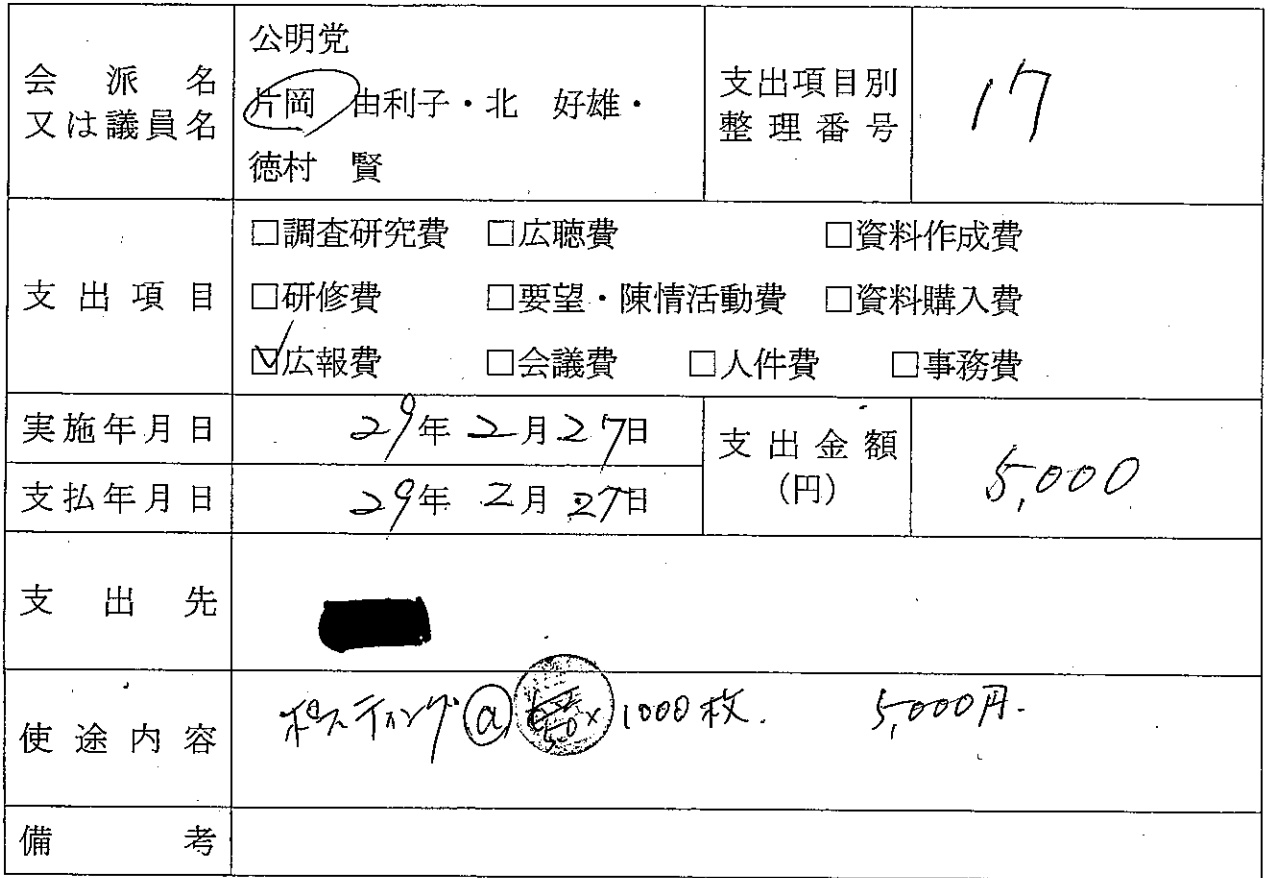 公明党
会派名
又は議員名
片岡 由利子・北 好雄・
徳村 賢
支出項目別
整理番号
17
支出項目
□調査研究費 □広聴費 □資料作成費
□研修費 □要望・陳情活動費 □資料購入費
☑広報費 □会議費 □人件費 □事務費
実施年月日 29年2月27日
支払年月日 29年2月27日
支出金額
(円)
5,000
支出先
使途内容 ポスティング@ ×1000枚. 5,000円.
備考